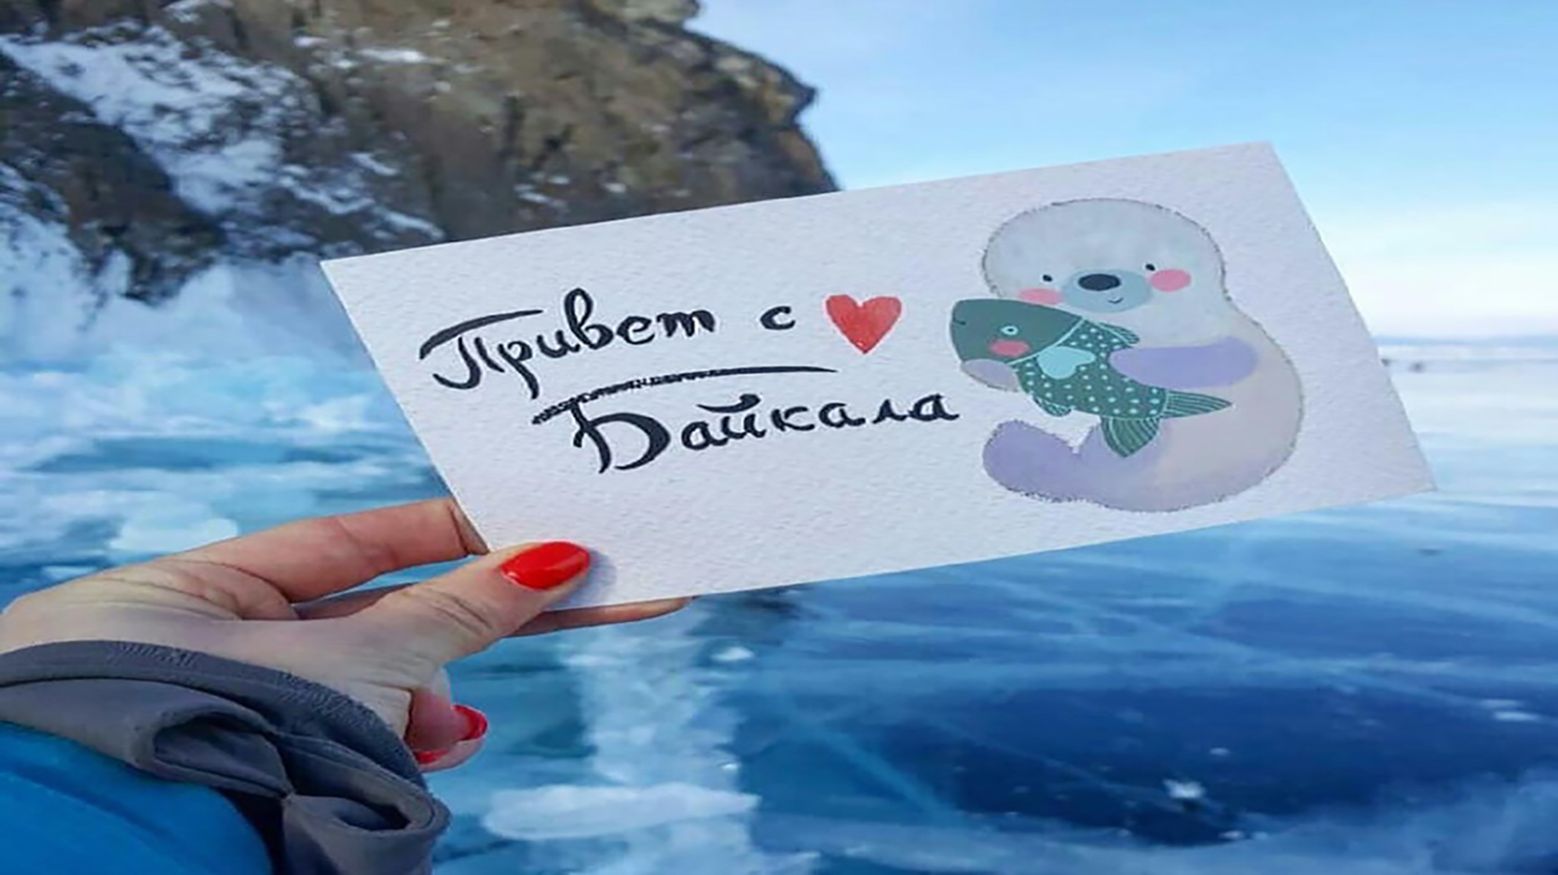 Привет с
Байкала